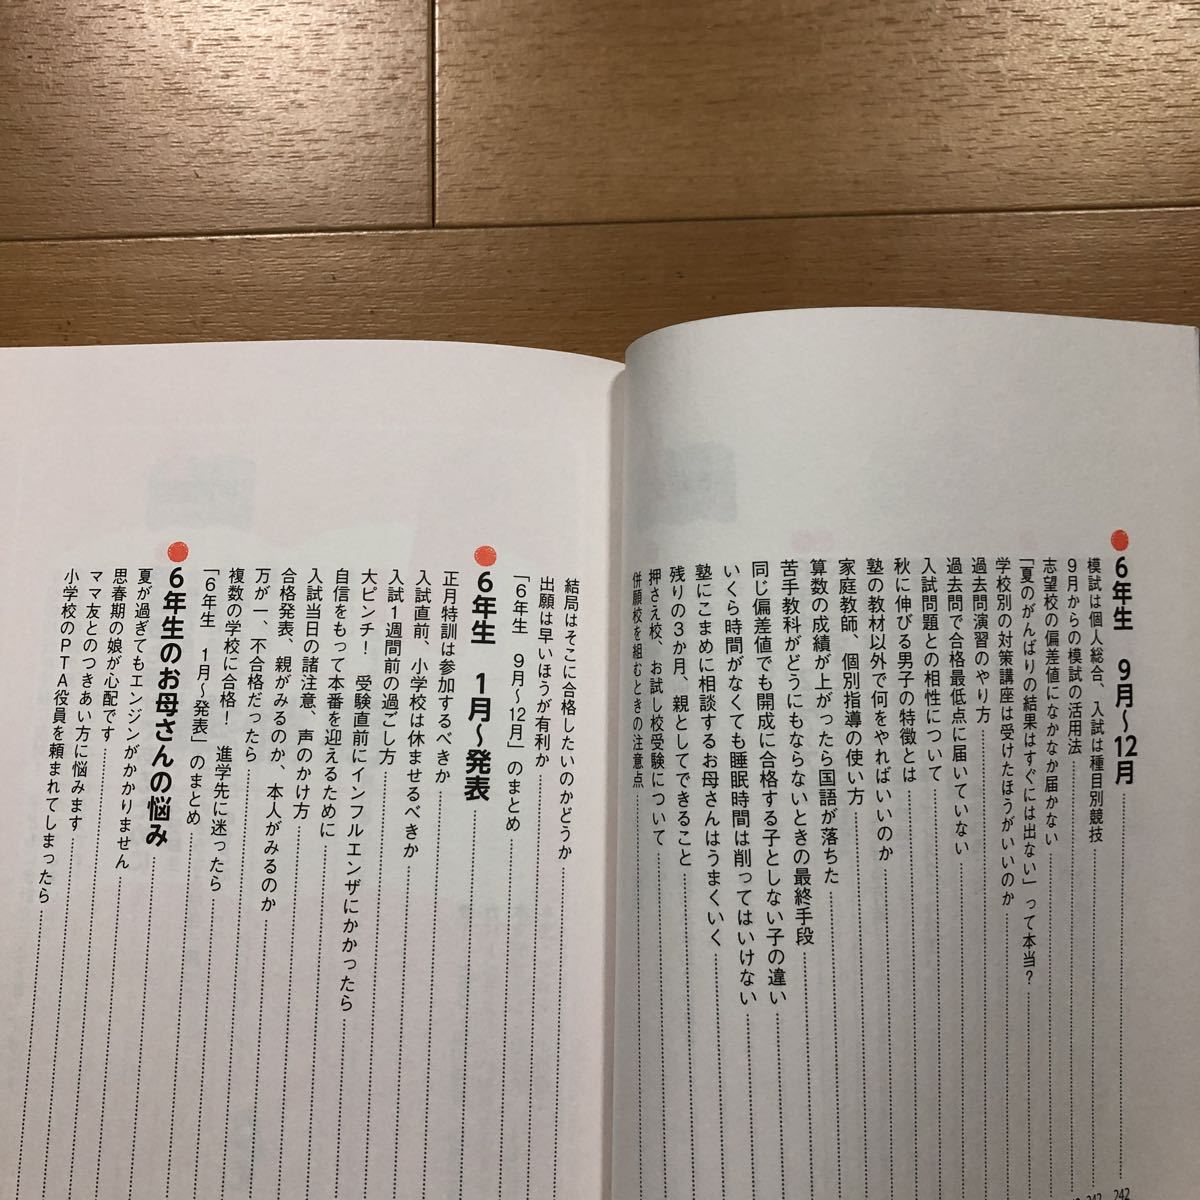 6年生　9月〜12月
242
模試は個人総合、入試は種目別競技
9月からの模試の活用法
志望校の偏差値になかなか届かない
「夏のがんばりの結果はすぐには出ない」って本当？
学校別の対策講座は受けたほうがいいのか
過去問演習のやり方
過去問で合格最低点に届いていない
入試問題との相性について
秋に伸びる男子の特徴とは
塾の教材以外で何をやればいいのか
家庭教師、個別指導の使い方
算数の成績が上がったら国語が落ちた
苦手教科がどうにもならないときの最終手段
同じ偏差値でも開成に合格する子としない子の違い
いくら時間がなくても睡眠時間は削ってはいけない
塾にこまめに相談するお母さんはうまくいく
残りの3か月、親としてできること
押さえ校、お試し校受験について
併願校を組むときの注意点
結局はそこに合格したいのかどうか
出願は早いほうが有利か
「6年生　9月〜12月」のまとめ
6年生　1月〜発表
正月特訓は参加するべきか
入試直前、小学校は休ませるべきか
入試1週間前の過ごし方
大ピンチ！　受験直前にインフルエンザにかかったら
自信をもって本番を迎えるために
入試当日の諸注意、声のかけ方
合格発表、親がみるのか、本人がみるのか
万が一、不合格だったら
複数の学校に合格！　進学先に迷ったら
「6年生　1月〜発表」のまとめ
6年生のお母さんの悩み
夏が過ぎてもエンジンがかかりません
思春期の娘が心配です
ママ友とのつきあい方に悩みます
小学校のPTA役員を頼まれてしまったら